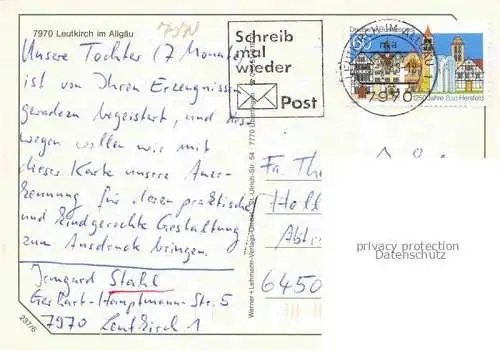 7970 Leutkirch im Allgäu
7970
Unsere Tochter (7 Monate)
ist von Ihren Erzeugnissen
geradezu begeistert, und des-
wegen wollen wir mit
dieser Karte unsere Aner-
kennung für deren praktische
und kindgerechte Gestaltung
zum Ausdruck bringen.
Irmgard Stahl
Gerhart-Hauptmann-Str. 5
7970 Leutkirch 1
237/6
Schreib
mal
wieder
Post
Deutsche Bundespost
60
1250 Jahre Bad Hersfeld
7970
Fa. Th
Holl
Abt
6450
privacy protection
Datenschutz